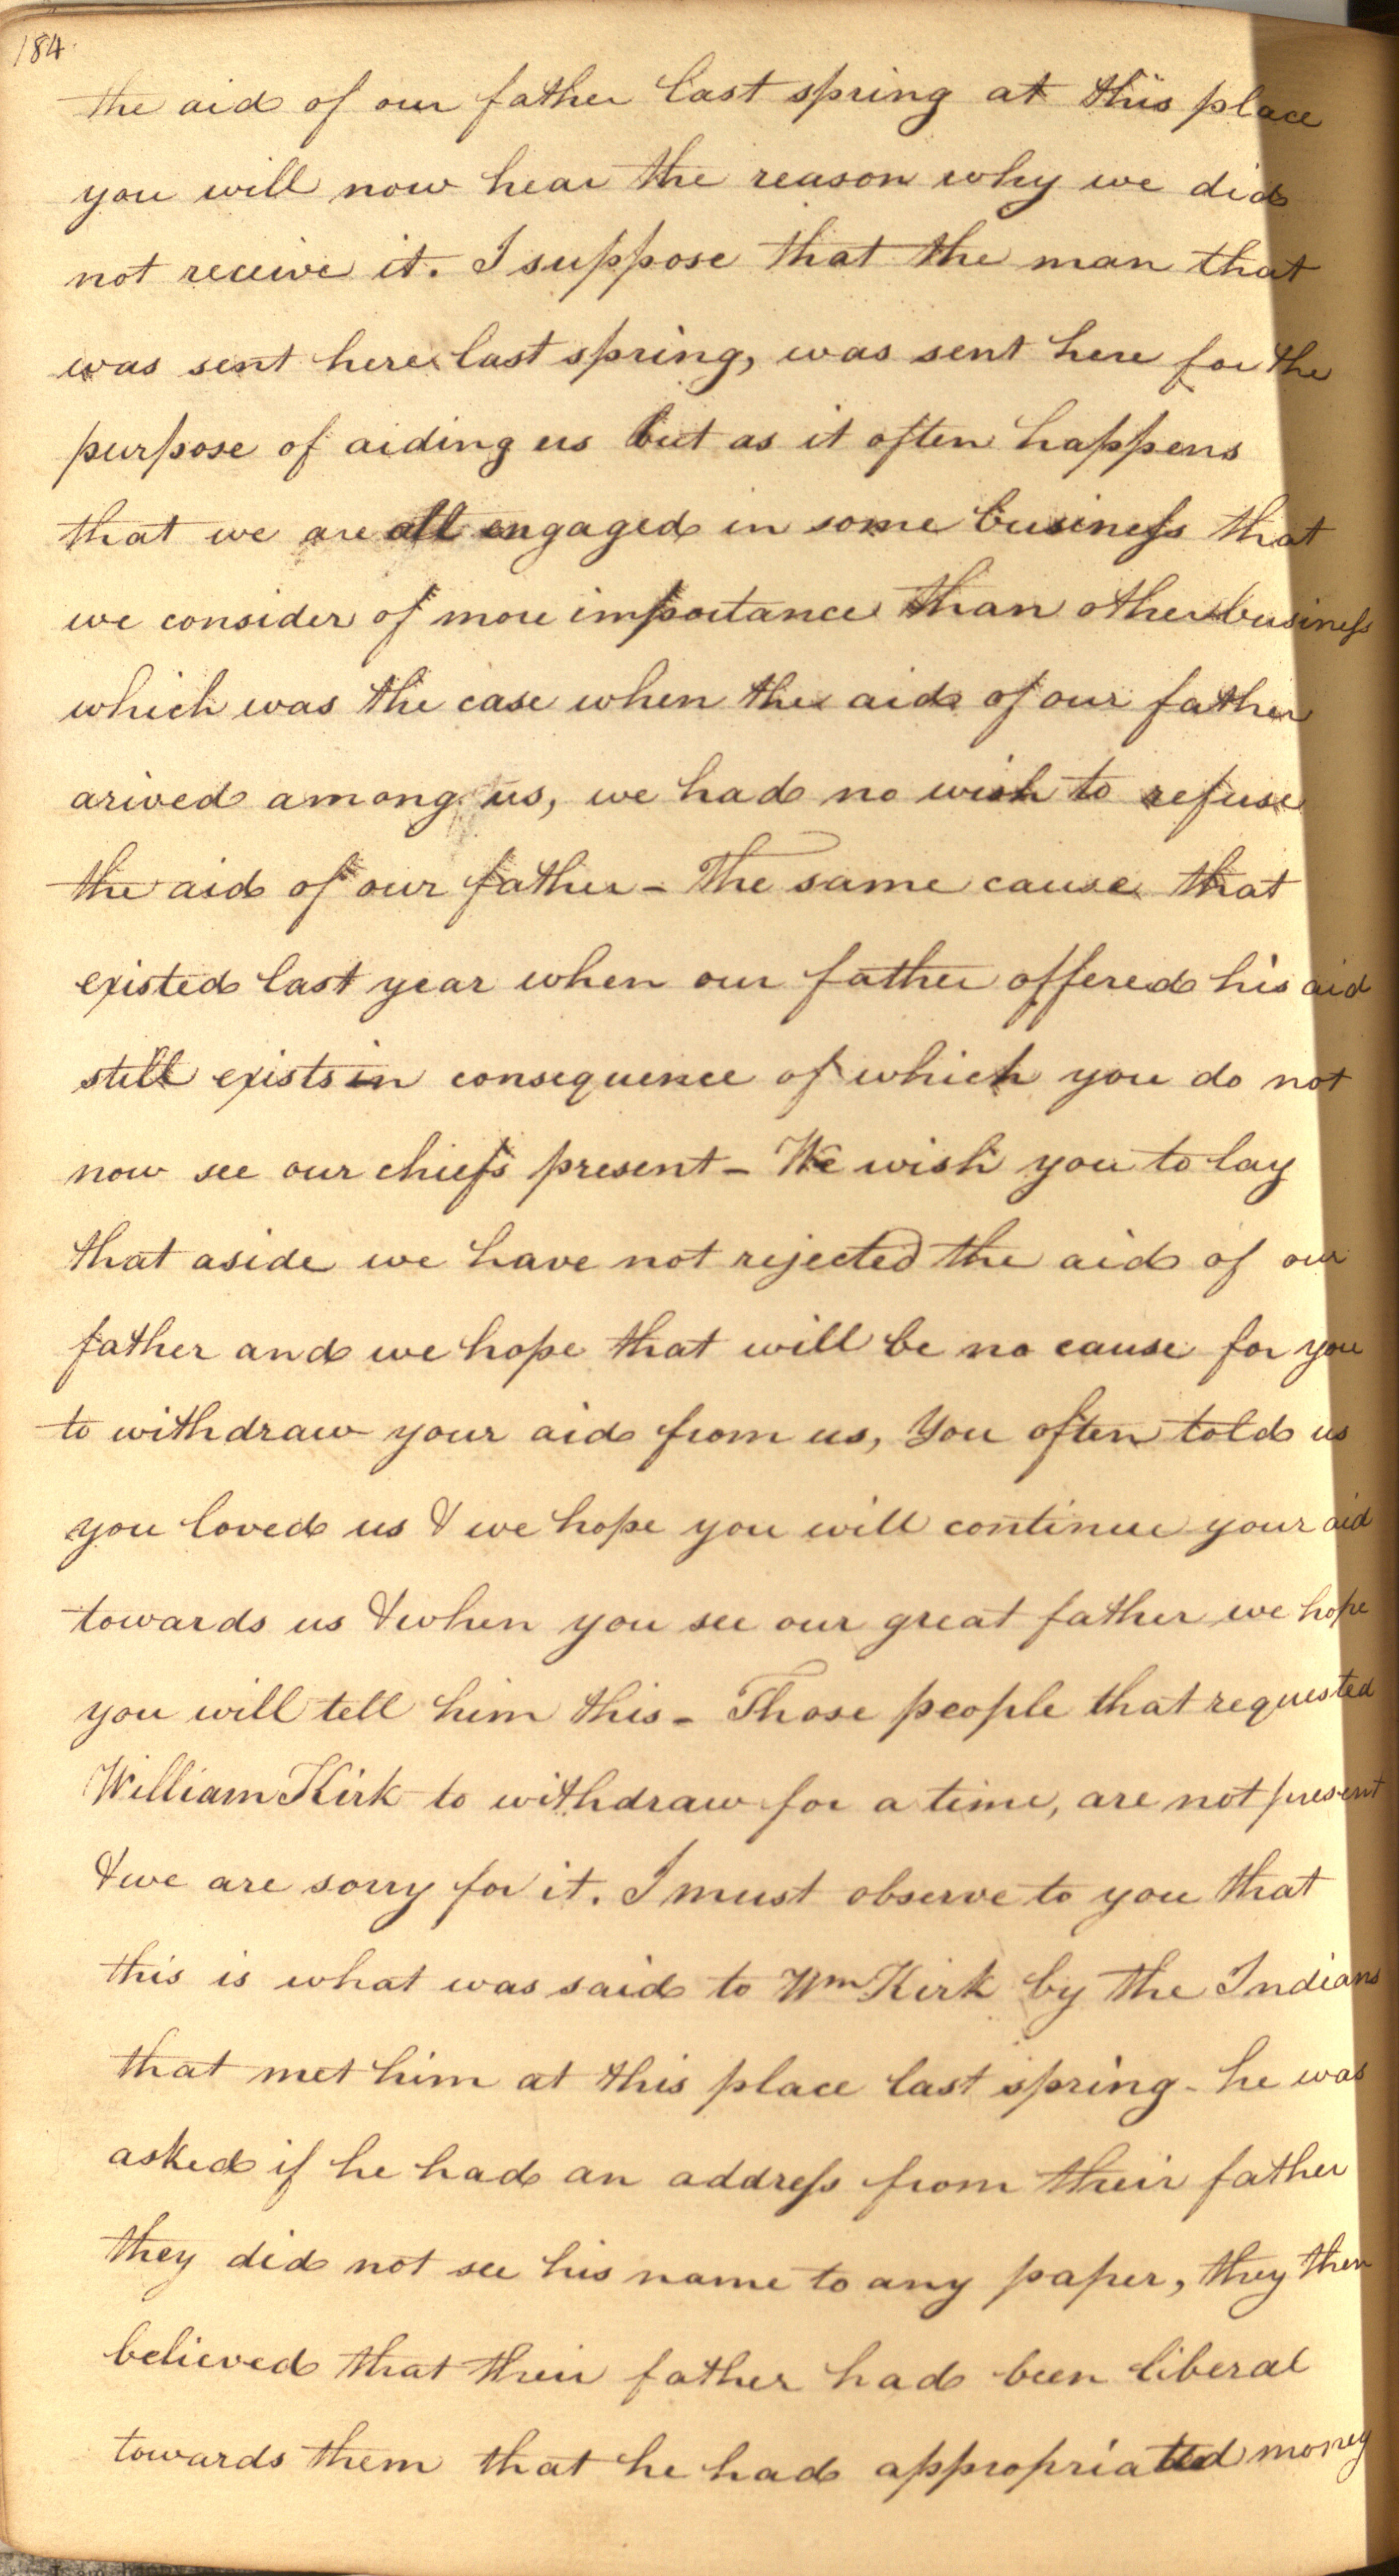 184.
the aid of our father last spring at this place
you will now hear the reason why we did
not receive it. I suppose that the man that
was sent here last spring, was sent here for the
purpose of aiding us but as it often happens
that we are all engaged in some business that
we consider of more importance than other business
which was the case when the aid of our father
arived among us, we had no wish to refuse
the aid of our father - The same cause that
existed last year when our father offered his aid
still exists in consequence of which you do not
now see our chiefs present - We wish you to lay
that aside we have not rejected the aid of our
father and we hope that will be no cause for you
to withdraw your aid from us, You often told us
you loved us & we hope you will continue your aid
towards us & when you see our great father we hope
you will tell him this - Those people that requested
William Kirk to withdraw for a time, are not present
& we are sorry for it. I must observe to you that
this is what was said to Wm Kirk by the Indians
that met him at this place last spring - he was
asked if he had an address from their father
they did not see his name to any paper, they then
believed that their father had been liberal
towards them that he had appropriated money